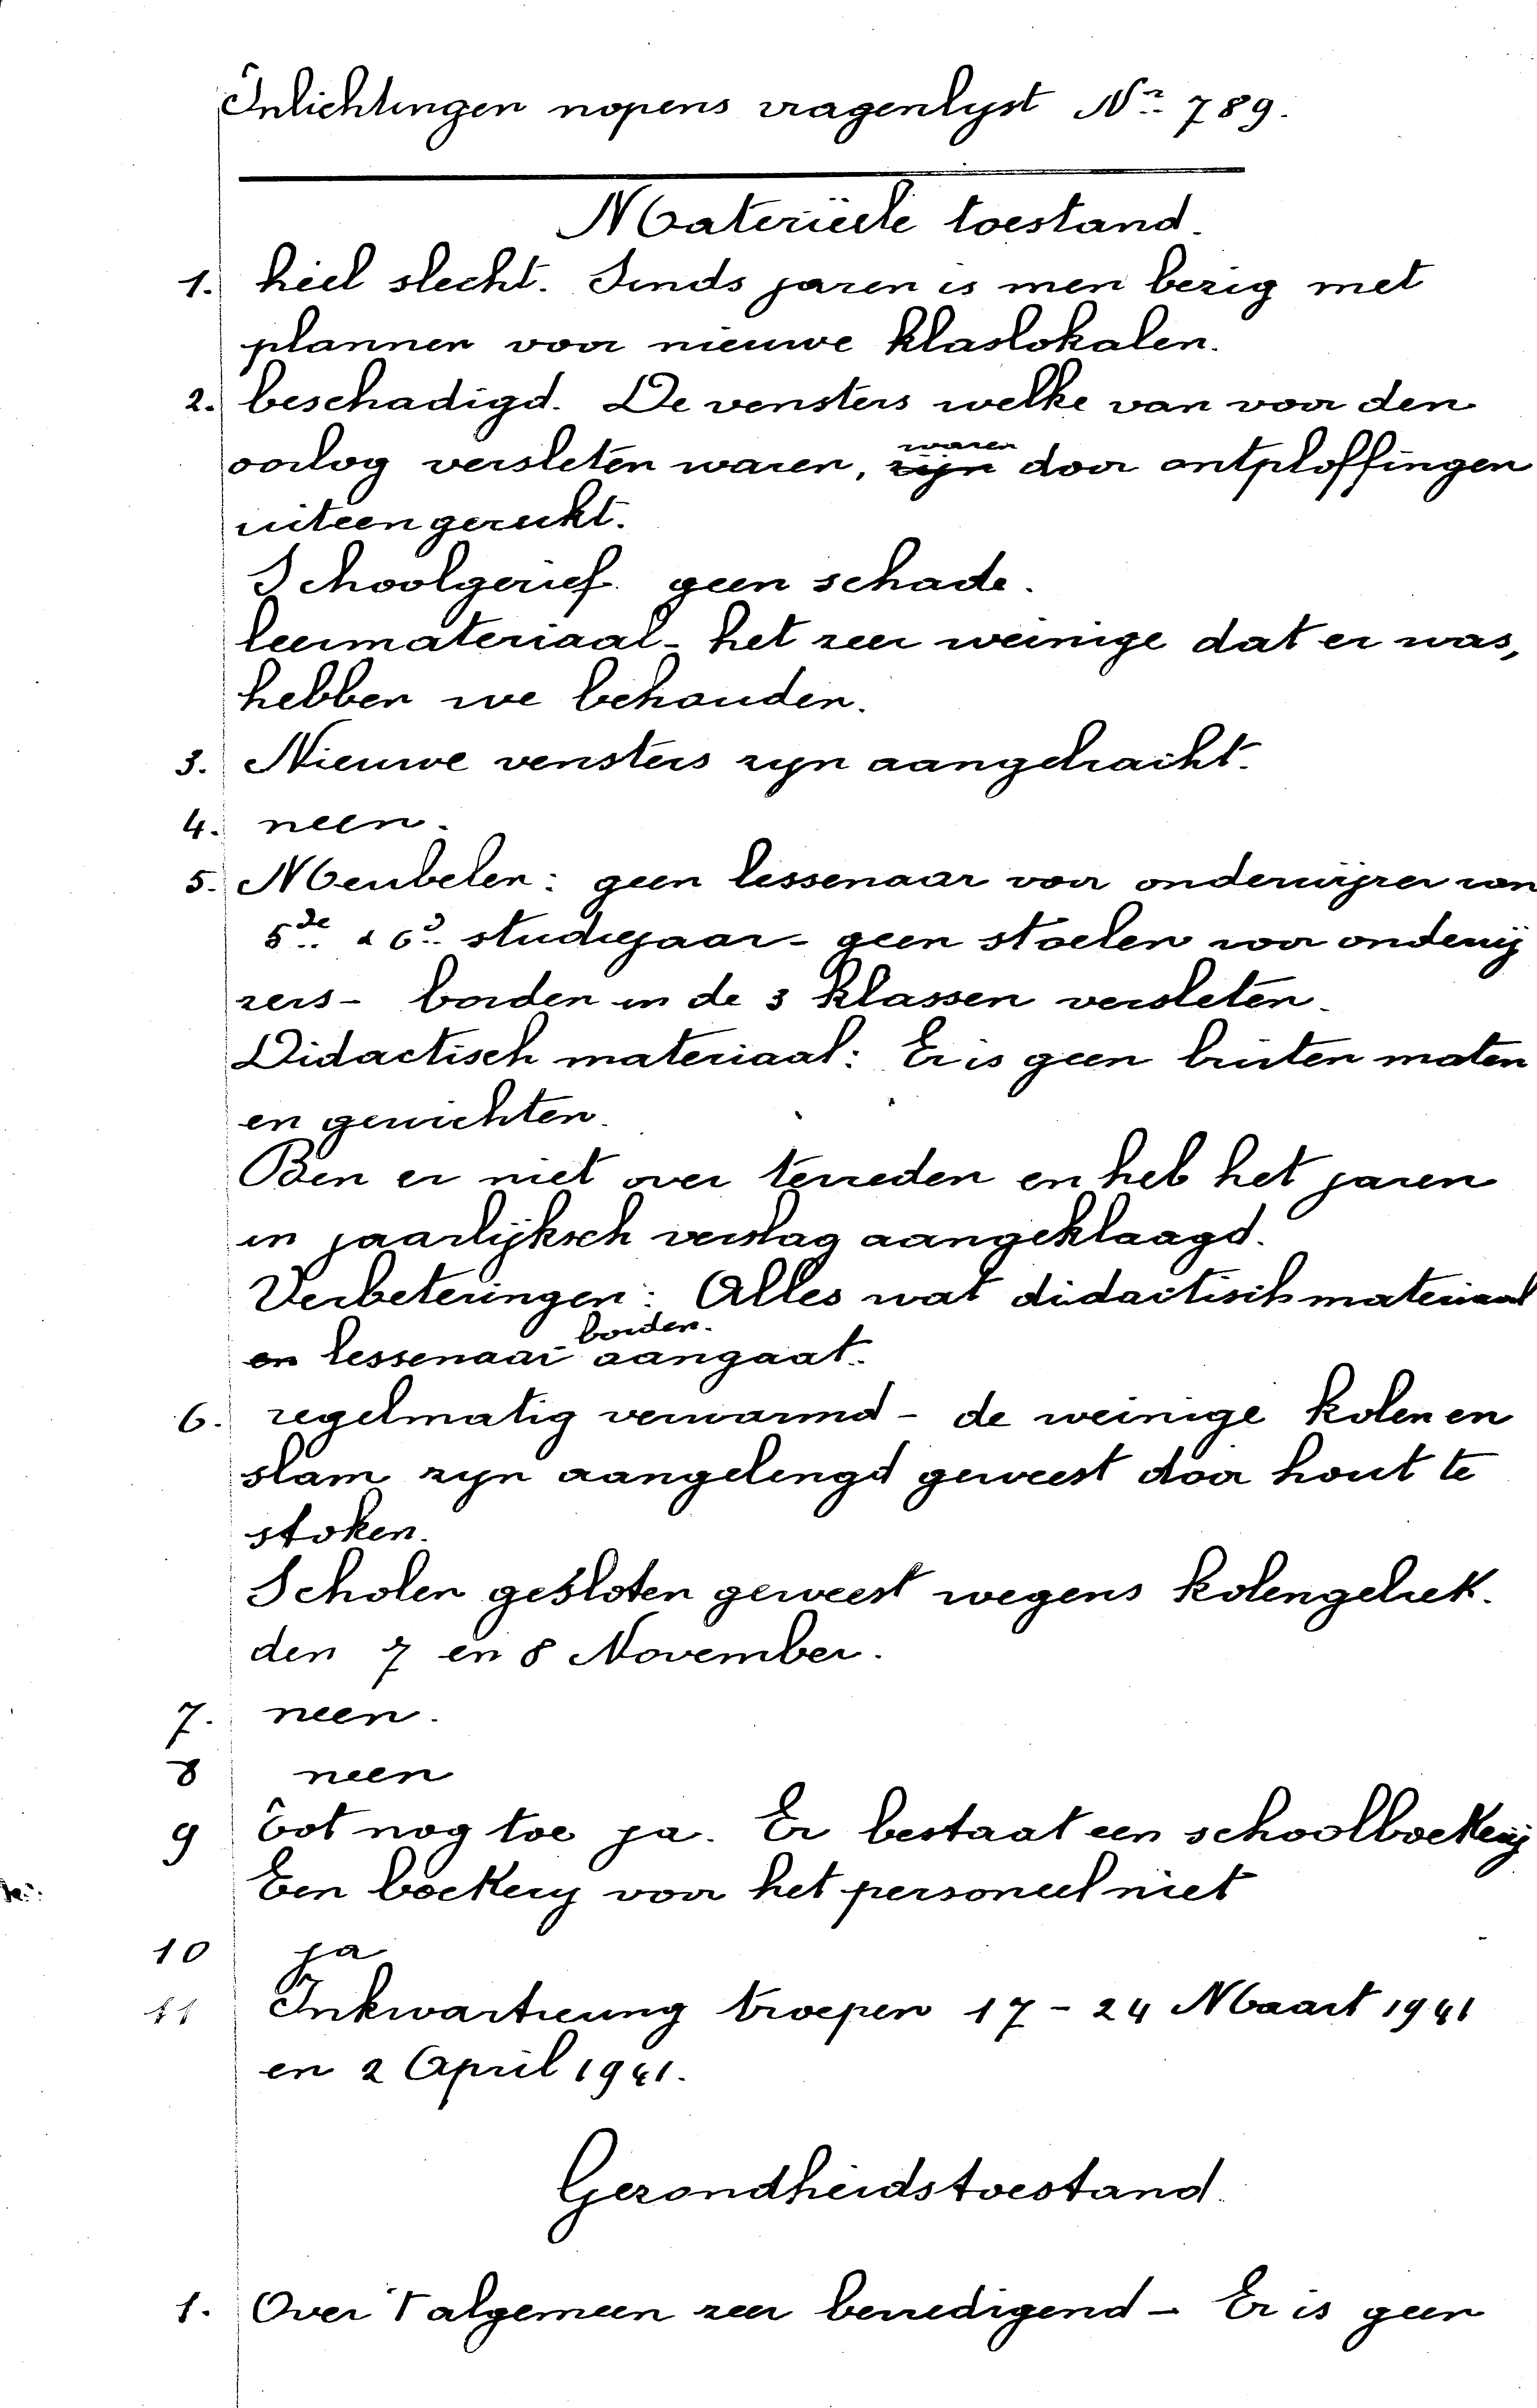 Inlichtingen nopens vragenlyst Nr. 789.
Materiëele toestand.
1. heel slecht. Sinds jaren is men bezig met
plannen voor nieuwe klaslokalen.
2. beschadigd. De vensters welke van voor den
waren
oorlog versleten waren, zijn door ontploffingen
uiteengerukt.
Schoolgerief geen schade.
leermateriaal - het zeer weinige dat er was,
hebben we behouden.
3. Nieuwe vensters zyn aangebracht.
4. neen.
5. Meubelen: geen lessenaar voor onderwijzer van
5de & 6d. studiejaar - geen stoelen voor onderwij
zers - borden in de 3 klassen versleten.
Didactisch materiaal: Er is geen buiten maten
en gewichten.
Ben er niet over tevreden en heb het jaren
in jaarlijksch verslag aangeklaagd.
Verbeteringen: Alles wat didactisch materiaal
borden.
en lessenaar aangaat.
6. regelmatig verwarmd - de weinige kolen en
slam zyn aangelengd geweest door hout te
stoken.
Scholen gesloten geweest wegens kolengebrek.
den 7 en 8 November.
7. neen.
8 neen
9 Tot nog toe ja. Er bestaat een schoolboekerij
Een boekery voor het personeel niet
10 ja
11 Inkwartiering troepen 17 - 24 Maart 1941
en 2 April 1941.
Gezondheidstoestand.
1. Over 't algemeen zeer bevredigend - Er is geen